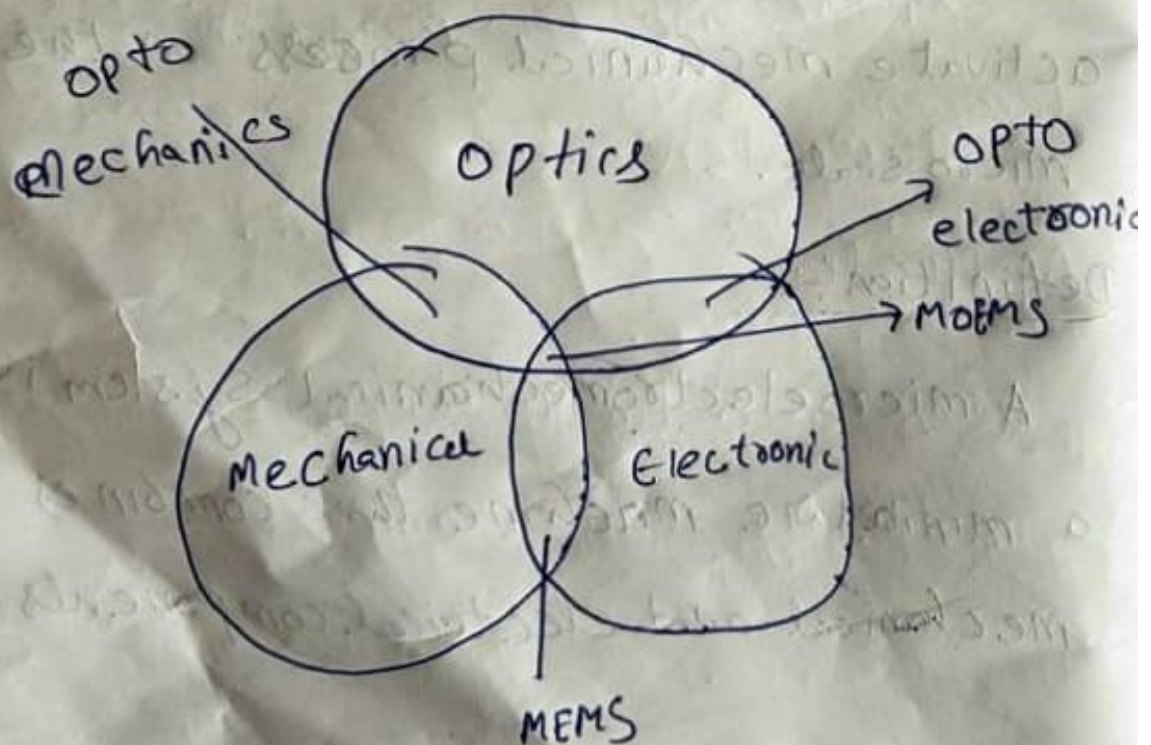 opto
Mechanics
optics
opto
electronic
MOEMS
Mechanical
Electronic
MEMS